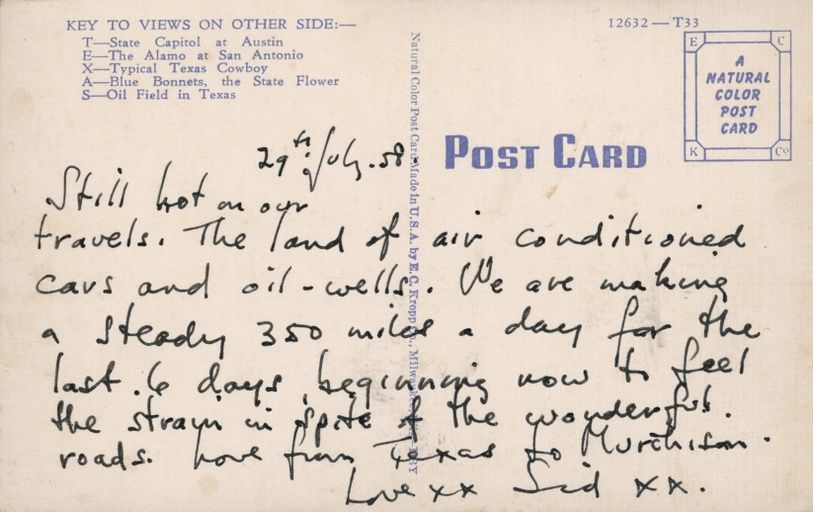 KEY TO VIEWS ON OTHER SIDE:—
T—State Capitol at Austin
E—The Alamo at San Antonio
X—Typical Texas Cowboy
A—Blue Bonnets, the State Flower
S—Oil Field in Texas
12632—T33
E C
A
NATURAL
COLOR
POST
CARD
K Co
POST CARD
Natural Color Post Card Made in U.S.A. by E. C. Kropp
29th July. 58.
Still hot on our
travels. The land of air conditioned
cars and oil-wells. We are making
a steady 350 miles a day for the
last 6 days beginning now to feel
the strain in spite of the wonderful
roads. Love from Texas to Murchison.
Love xx Sid xx.